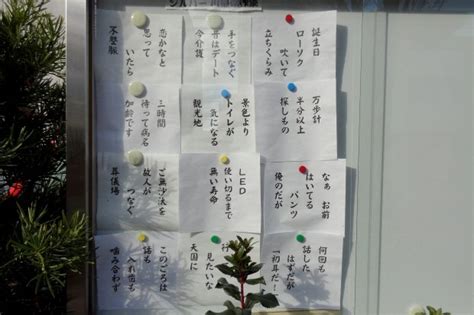 シルバー川柳
誕生日
ローソク 吹いて
立ちくらみ
手をつなぐ
昔はデート
今介護
恋かなと
思って いたら
不整脈
万歩計
半分以上
探しもの
景色より
トイレが 気になる
観光地
三時間
待って病名
加齢です
なぁ お前
はいてる パンツ
俺のだが
LED
使い切るまで
無い寿命
ご無沙汰を
故人が つなぐ
葬儀場
何回も
話した はずだが
「初耳だ!」
行
見たいな
天国に
このごろは
話も 入れ歯も
噛み合わず